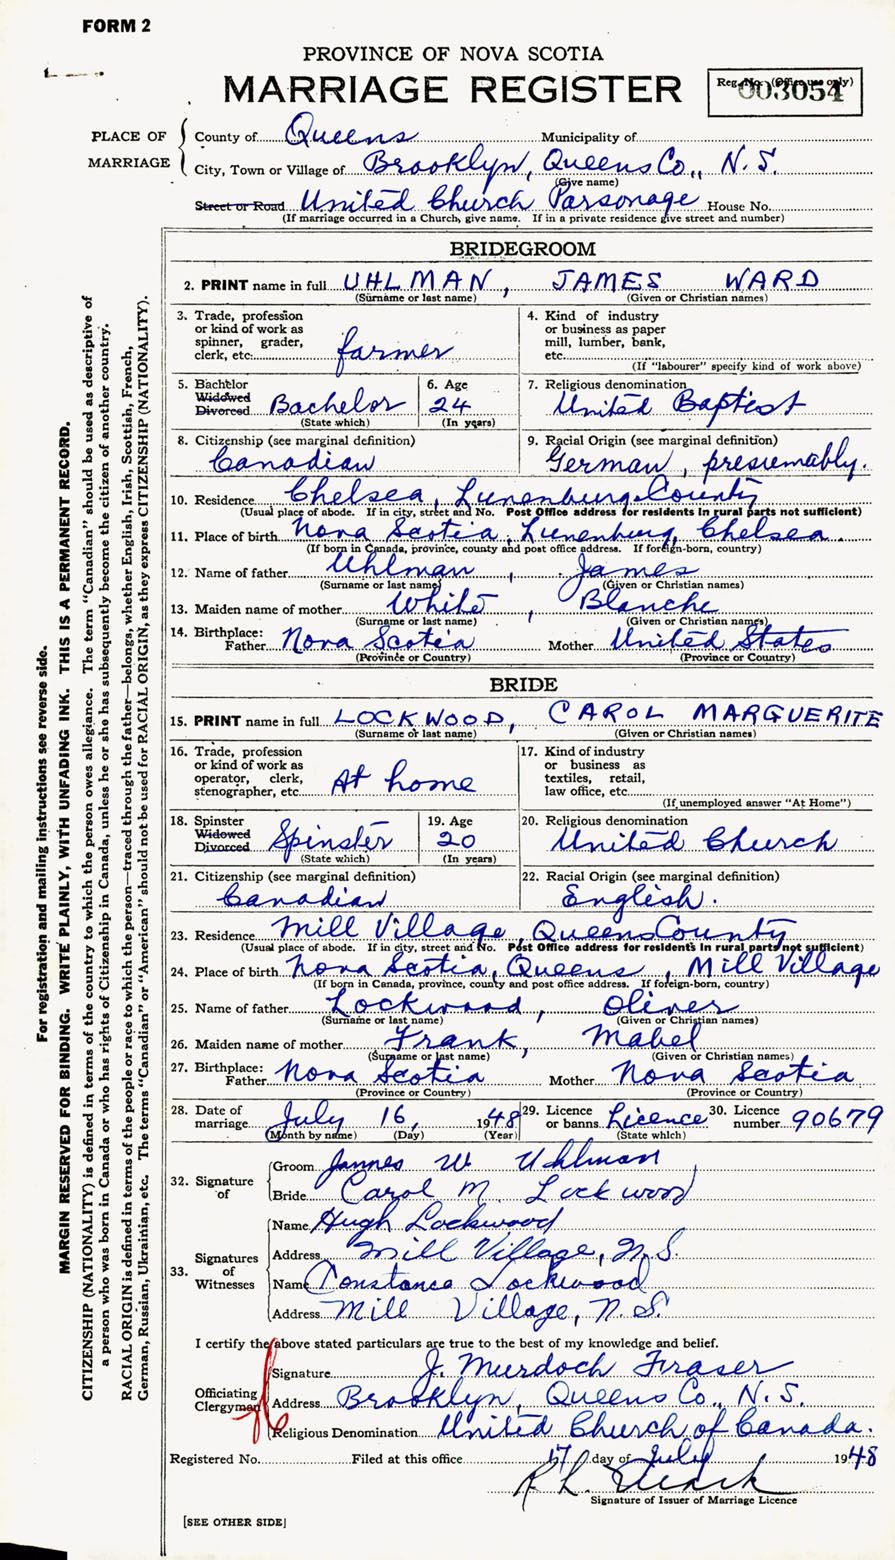 FORM 2
PROVINCE OF NOVA SCOTIA
MARRIAGE REGISTER
Reg. No. (Office use only)
003054
PLACE OF MARRIAGE
County of Queens Municipality of
City, Town or Village of Brooklyn, Queens Co., N.S.
(Give name)
Street or Road United Church Parsonage House No.
(If marriage occurred in a Church, give name. If in a private residence give street and number)
BRIDEGROOM
2. PRINT name in full UHLMAN, JAMES WARD
(Surname or last name) (Given or Christian names)
3. Trade, profession
or kind of work as
spinner, grader,
clerk, etc. farmer
4. Kind of industry
or business as paper
mill, lumber, bank,
etc.
(If "labourer" specify kind of work above)
5. Bachelor
Widowed
Divorced Bachelor
(State which)
6. Age
24
(In years)
7. Religious denomination
United Baptist
8. Citizenship (see marginal definition)
Canadian
9. Racial Origin (see marginal definition)
German, presumably.
10. Residence Chelsea, Lunenburg County
(Usual place of abode. If in city, street and No. Post Office address for residents in rural parts not sufficient)
11. Place of birth Nova Scotia, Lunenburg, Chelsea
(If born in Canada, province, county and post office address. If foreign-born, country)
12. Name of father Uhlman, James
(Surname or last name) (Given or Christian names)
13. Maiden name of mother White, Blanche
(Surname or last name) (Given or Christian names)
14. Birthplace:
Father Nova Scotia Mother United States
(Province or Country) (Province or Country)
BRIDE
15. PRINT name in full LOCKWOOD, CAROL MARGUERITE
(Surname or last name) (Given or Christian names)
16. Trade, profession
or kind of work as
operator, clerk,
stenographer, etc. At home
17. Kind of industry
or business as
textiles, retail,
law office, etc.
(If unemployed answer "At Home")
18. Spinster
Widowed
Divorced Spinster
(State which)
19. Age
20
(In years)
20. Religious denomination
United Church
21. Citizenship (see marginal definition)
Canadian
22. Racial Origin (see marginal definition)
English.
23. Residence Mill Village, Queens County
(Usual place of abode. If in city, street and No. Post Office address for residents in rural parts not sufficient)
24. Place of birth Nova Scotia, Queens, Mill Village
(If born in Canada, province, county and post office address. If foreign-born, country)
25. Name of father Lockwood, Oliver
(Surname or last name) (Given or Christian names)
26. Maiden name of mother Frank, Mabel
(Surname or last name) (Given or Christian names)
27. Birthplace:
Father Nova Scotia Mother Nova Scotia
(Province or Country) (Province or Country)
28. Date of
marriage July 16, 1948
(Month by name) (Day) (Year)
29. Licence
or banns Licence
(State which)
30. Licence
number 90679
32. Signature
of
Groom James W Uhlman
Bride Carol M. Lockwood
33. Signatures
of
Witnesses
Name Hugh Lockwood
Address Mill Village, N.S.
Name Constance Lockwood
Address Mill Village, N.S.
I certify the above stated particulars are true to the best of my knowledge and belief.
Officiating
Clergyman
Signature J. Murdoch Fraser
Address Brooklyn, Queens Co., N.S.
Religious Denomination United Church of Canada.
Registered No. Filed at this office 17 day of July 1948
R L
Signature of Issuer of Marriage Licence
[SEE OTHER SIDE]
For registration and mailing instructions see reverse side.
MARGIN RESERVED FOR BINDING. WRITE PLAINLY, WITH UNFADING INK. THIS IS A PERMANENT RECORD.
CITIZENSHIP (NATIONALITY) is defined in terms of the country to which the person owes allegiance. The term "Canadian" should be used as descriptive of
a person who was born in Canada or who has rights of Citizenship in Canada, unless he or she has subsequently become the citizen of another country.
RACIAL ORIGIN is defined in terms of the people or race to which the person—traced through the father—belongs, whether English, Irish, Scottish, French,
German, Russian, Ukrainian, etc. The terms "Canadian" or "American" should not be used for RACIAL ORIGIN, as they express CITIZENSHIP (NATIONALITY).